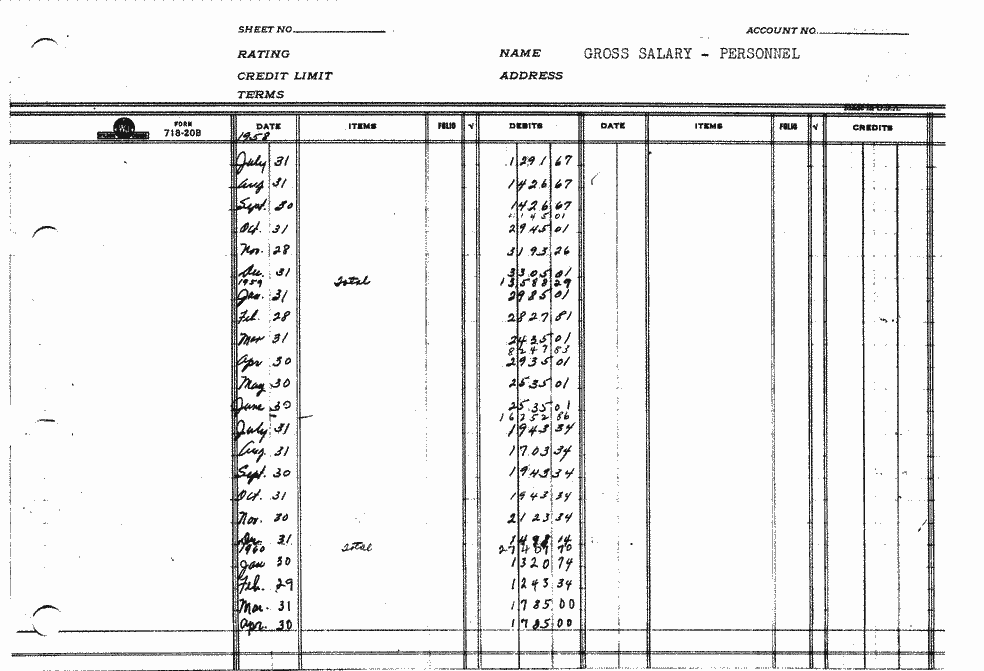 SHEET NO. ACCOUNT NO.
RATING NAME GROSS SALARY - PERSONNEL
CREDIT LIMIT ADDRESS
TERMS
FORM 718-20B DATE ITEMS FOLIO √ DEBITS DATE ITEMS FOLIO √ CREDITS
1958
July 31 1291 67
Aug 31 1426 67
Sept. 30 1426 67
4145 01
Oct. 31 2945 01
Nov. 28 3193 26
Dec. 31 3305 01
1959 Total 13588 29
Jan. 31 2985 01
Feb. 28 2827 81
Mar 31 2435 01
8247 83
Apr 30 2935 01
May 30 2535 01
June 30 2535 01
16252 86
July 31 1943 34
Aug. 31 1703 34
Sept. 30 1943 34
Oct. 31 1943 34
Nov. 30 2123 34
Dec. 31 1498 14
1960 Total 27407 70
Jan 30 1320 74
Feb. 29 1243 34
Mar. 31 1785 00
Apr. 30 1785 00